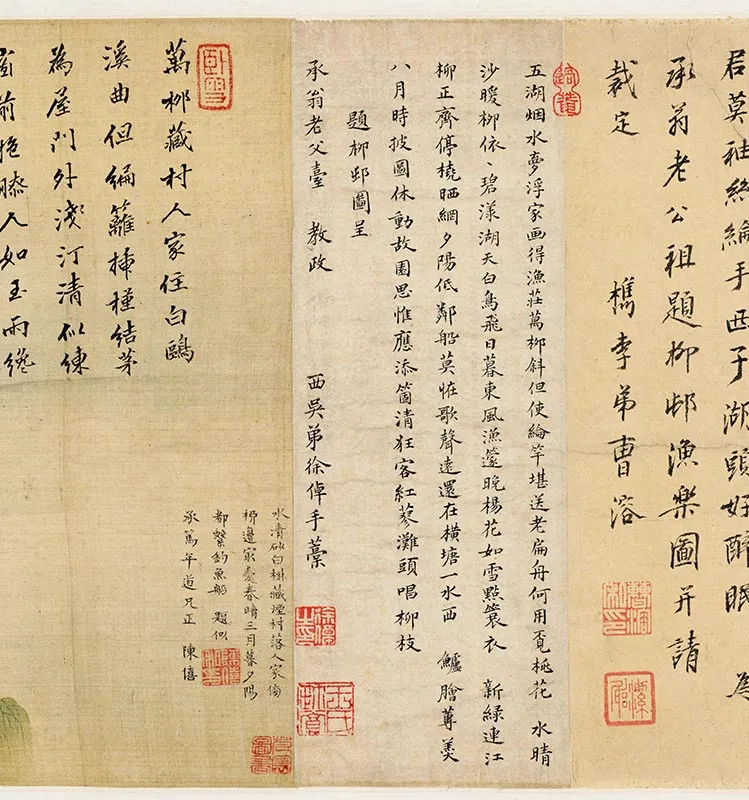 君莫袖絲綸手西子湖頭好醉眠　為
承翁老公祖題柳邨漁樂圖并請
裁定　檇李弟曹溶
五湖烟水夢浮家画得漁莊萬柳斜但使綸竿堪送老扁舟何用覓桃花　水晴
沙暖柳依、碧漾湖天白鳥飛日暮東風漁篴晚楊花如雪點蓑衣　新綠連江
柳正齊停橈晒網夕陽低鄰船莫怪歌聲遠還在橫塘一水西　鱸膾蓴羹
八月時披圖休動故園思惟應添箇清狂客紅蓼灘頭唱柳枝
題柳邨圖呈
承翁老父臺　教政
西吳弟徐倬手藁
臥雪
萬柳藏村人家住白鷗
溪曲但編籬插槿結茅
為屋門外淺汀清似練
窗前艷人如玉雨纔
水清砂白樹藏煙村落人家傍
柳邊最愛春晴三月暮夕陽
都繫釣魚船　題似
承篤年道兄正　陳僖